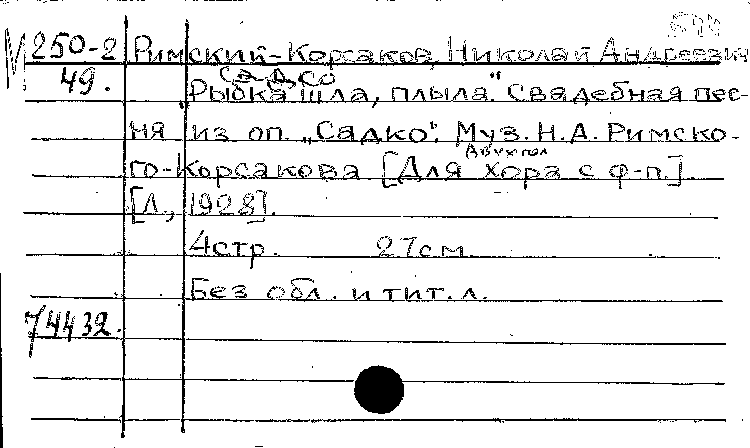 М 250-2 Римский-Корсаков, Николай Андреевич
49. Садко
„Рыбка шла, плыла." Свадебная пес-
ня из оп. „Садко". Муз. Н.А. Римско-
двухгол
го-Корсакова [Для хора с ф-п.]
[Л., 1928].
4стр. 27см
Без обл. и тит. л.
74432.